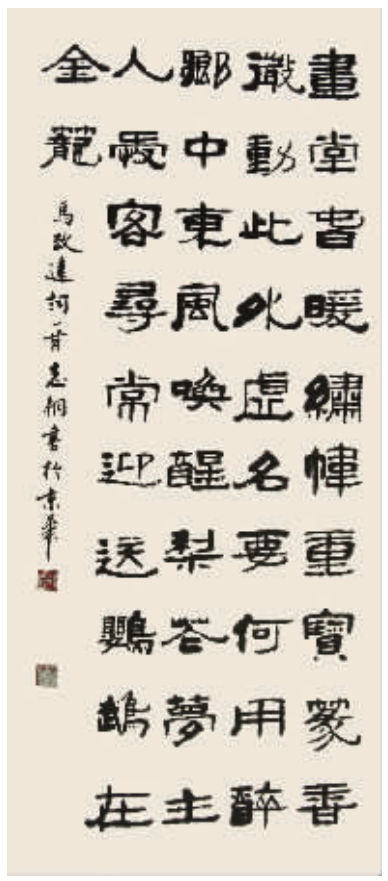 畫堂春暖繡幃重寶篆香
微動此外虛名要何用醉
鄉中東風喚醒梨花夢主
人愛客尋常迎送鸚鵡在
金籠
馬致遠詞甘志桐書於京華